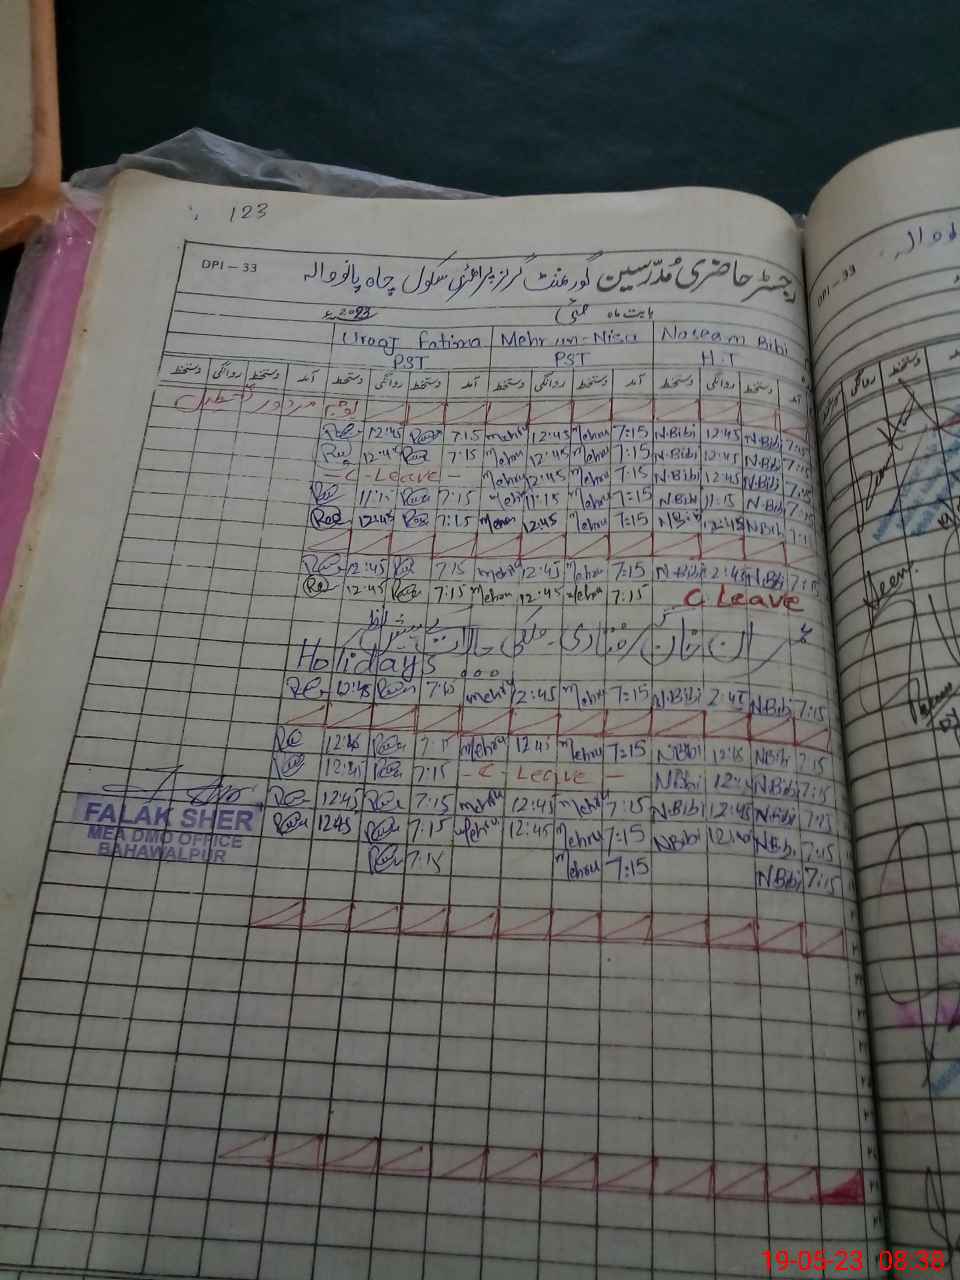 123
DPI - 33
رجسٹر حاضری مُدرّسین گورنمنٹ گرلز پرائمری سکول چاہ پانووالہ
بابت ماہ مئی 2023ء
Urooj Fatima Mehr un-Nisa Naseam Bibi
PST PST H.T
آمد دستخط روانگی دستخط آمد دستخط روانگی دستخط آمد دستخط روانگی دستخط آمد دستخط روانگی دستخط
یوم مزدور تعطیل
12:45 7:15 Mehru 12:45 Mehru 7:15 N.Bibi 12:45 N.Bibi 7:15
12:45 7:15 Mehru 12:45 Mehru 7:15 N.Bibi 12:45 N.Bibi 7:15
- C Leave - Mehru 12:45 Mehru 7:15 N.Bibi 12:45 N.Bibi 7:15
11:15 7:15 Mehru 11:15 Mehru 7:15 N.Bibi 11:15 N.Bibi 7:15
12:45 7:15 Mehru 12:45 Mehru 7:15 N.Bibi 12:45 N.Bibi
12:45 7:15 Mehru 12:45 Mehru 7:15 N.Bibi 2:45 N.Bibi 7:15
12:45 7:15 Mehru 12:45 Mehru 7:15 C Leave
عمران خان گرفتاری - ملکی حالات کے پیش نظر
Holidays...
12:45 7:15 Mehru 2:45 Mehru 7:15 N.Bibi 2:45 N.Bibi 7:15
12:45 7:15 Mehru 12:45 Mehru 7:15 NBibi 12:45 NBibi 7:15
12:45 7:15 - C Leave - NBibi 12:4 NBibi 7:15
12:45 7:15 Mehru 12:45 Mehru 7:15 N.Bibi 12:45 N.Bibi 7:15
12:45 7:15 Mehru 12:45 Mehru 7:15 NBibi N.Bibi 7:15
7:15 Mehru 7:15 N.Bibi 7:15
FALAK SHER
MEA DMO OFFICE
BAHAWALPUR
DPI - 33
19-05-23 08:38